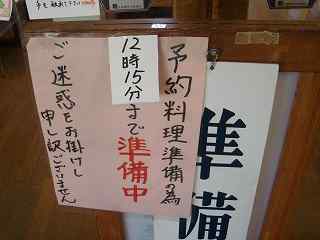 予約料理準備の為
12時15分まで準備中
ご迷惑をお掛けし
申し訳ございません
準備